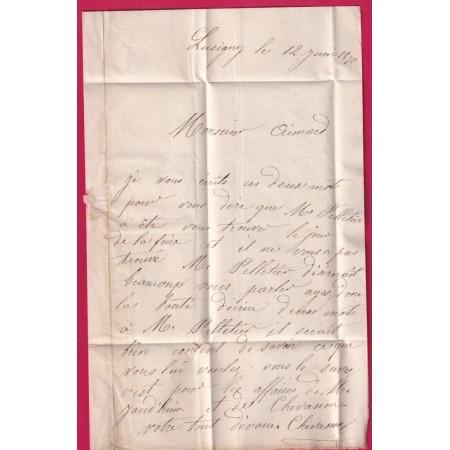 Lusigny le 12 Juin 1870
Monsieur Aimard
je vous écrits ces deux mots
pour vous dire que Mr Pelletier
à été vous trouvé le jour
de la foire et il ne vous a pas
trouvé Mr Pelletier désirerait
beaucoup vous parler ayez donc
la bonté d'écrire deux mots
à Mr Pelletier il serait
bien content de savoir ce que
vous lui voulez, vous le savez
c'est pour les affaires de Mr
et de Chevasson
votre tout dévouée Chevasson